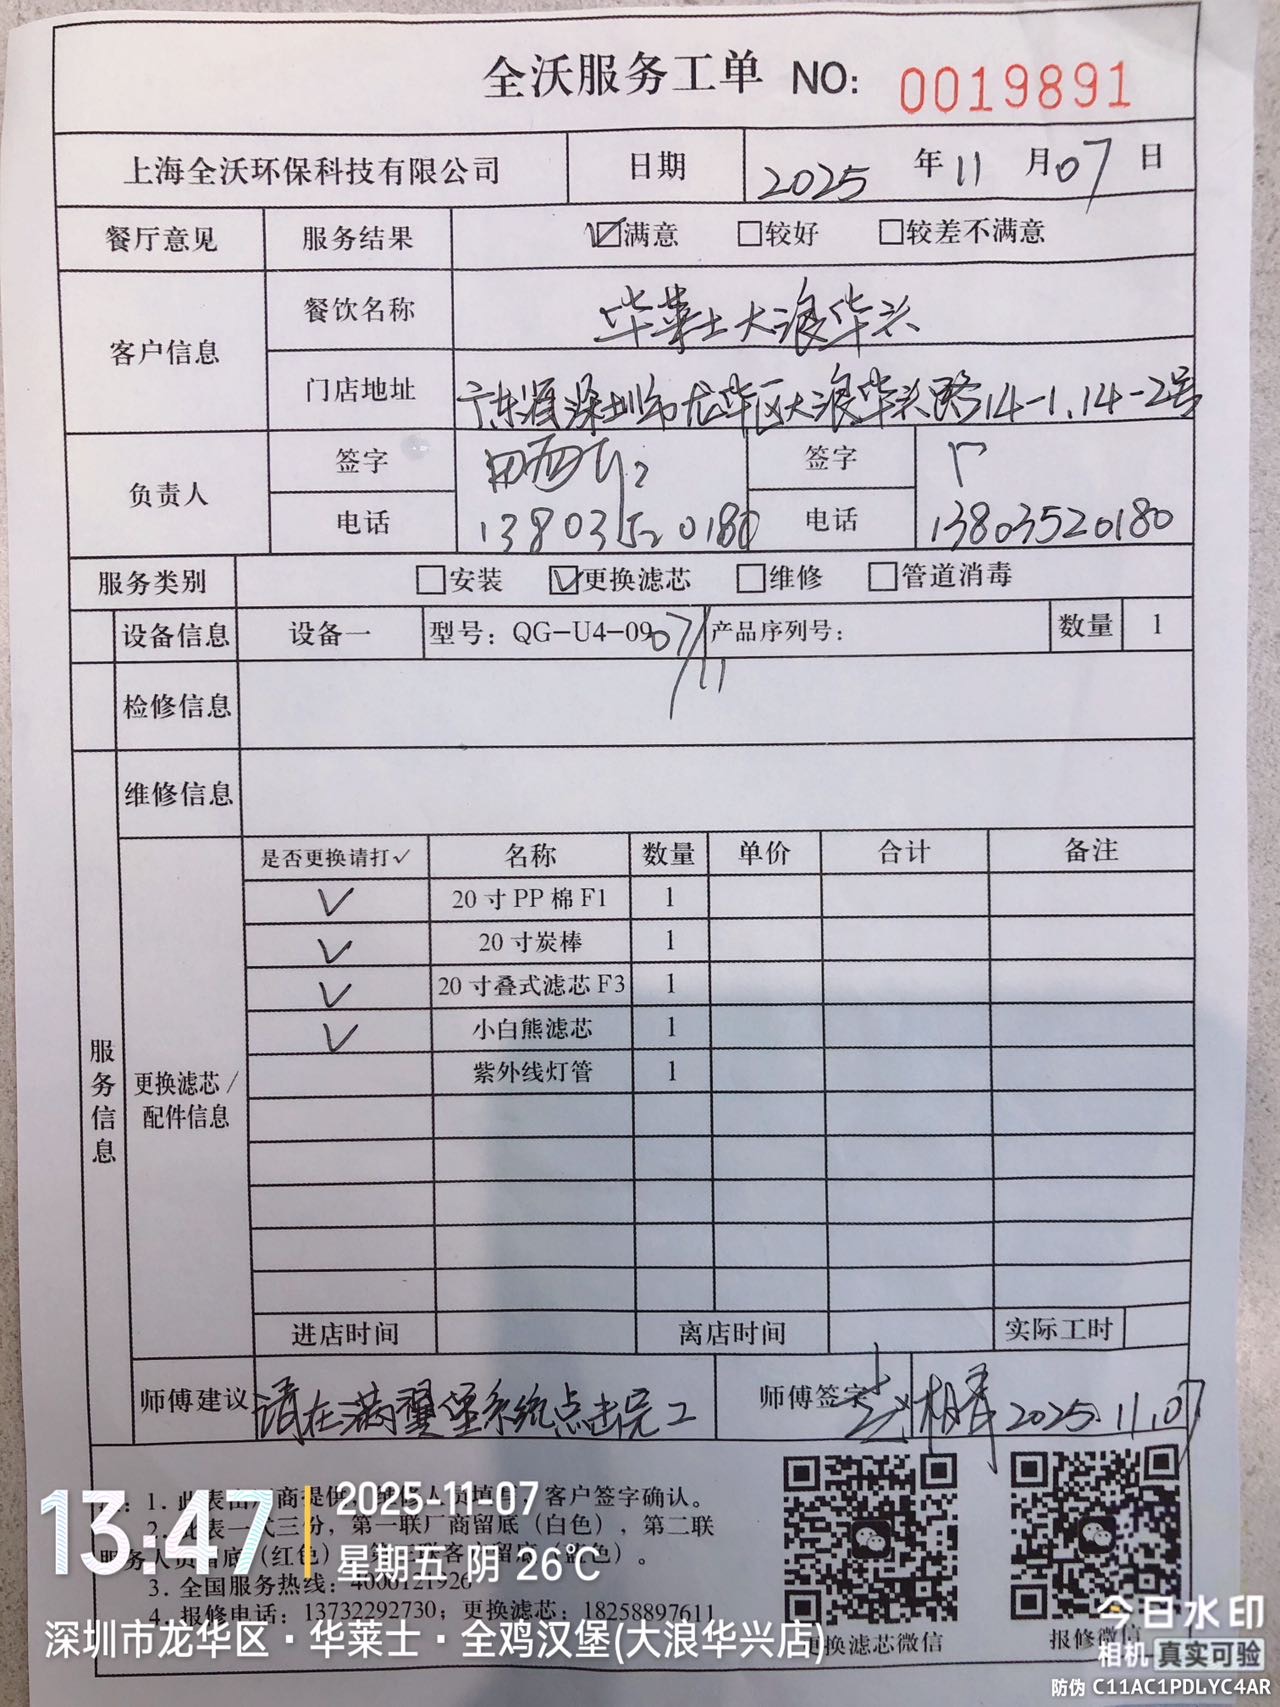 全沃服务工单 NO: 0019891
上海全沃环保科技有限公司 日期 2025 年 11 月 07 日
餐厅意见 服务结果 ☑满意 □较好 □较差不满意
客户信息 餐饮名称 华莱士大浪华头
门店地址 广东省深圳市龙华区大浪华头路14-1.14-2号
负责人 签字 签字
电话 13803520180 电话 13803520180
服务类别 □安装 ☑更换滤芯 □维修 □管道消毒
设备信息 设备一 型号：QG-U4-09 07/11 产品序列号： 数量 1
检修信息
维修信息
服务信息
更换滤芯/配件信息
是否更换请打✓ 名称 数量 单价 合计 备注
✓ 20寸PP棉F1 1
✓ 20寸炭棒 1
✓ 20寸叠式滤芯F3 1
✓ 小白熊滤芯 1
紫外线灯管 1
进店时间 离店时间 实际工时
师傅建议 请在满翼堡系统点击完工 师傅签字 2025.11.07
1. 此表由厂商提供，客户签字确认。
2. 此表一式三份，第一联厂商留底（白色），第二联
服务人员留底（红色）
3. 全国服务热线：4000121926
4. 报修电话：13732292730；更换滤芯：18258897611
更换滤芯微信 报修微信
13:47 2025-11-07
星期五 阴 26℃
深圳市龙华区·华莱士·全鸡汉堡(大浪华兴店)
今日水印
相机 真实可验
防伪 C11AC1PDLYC4AR